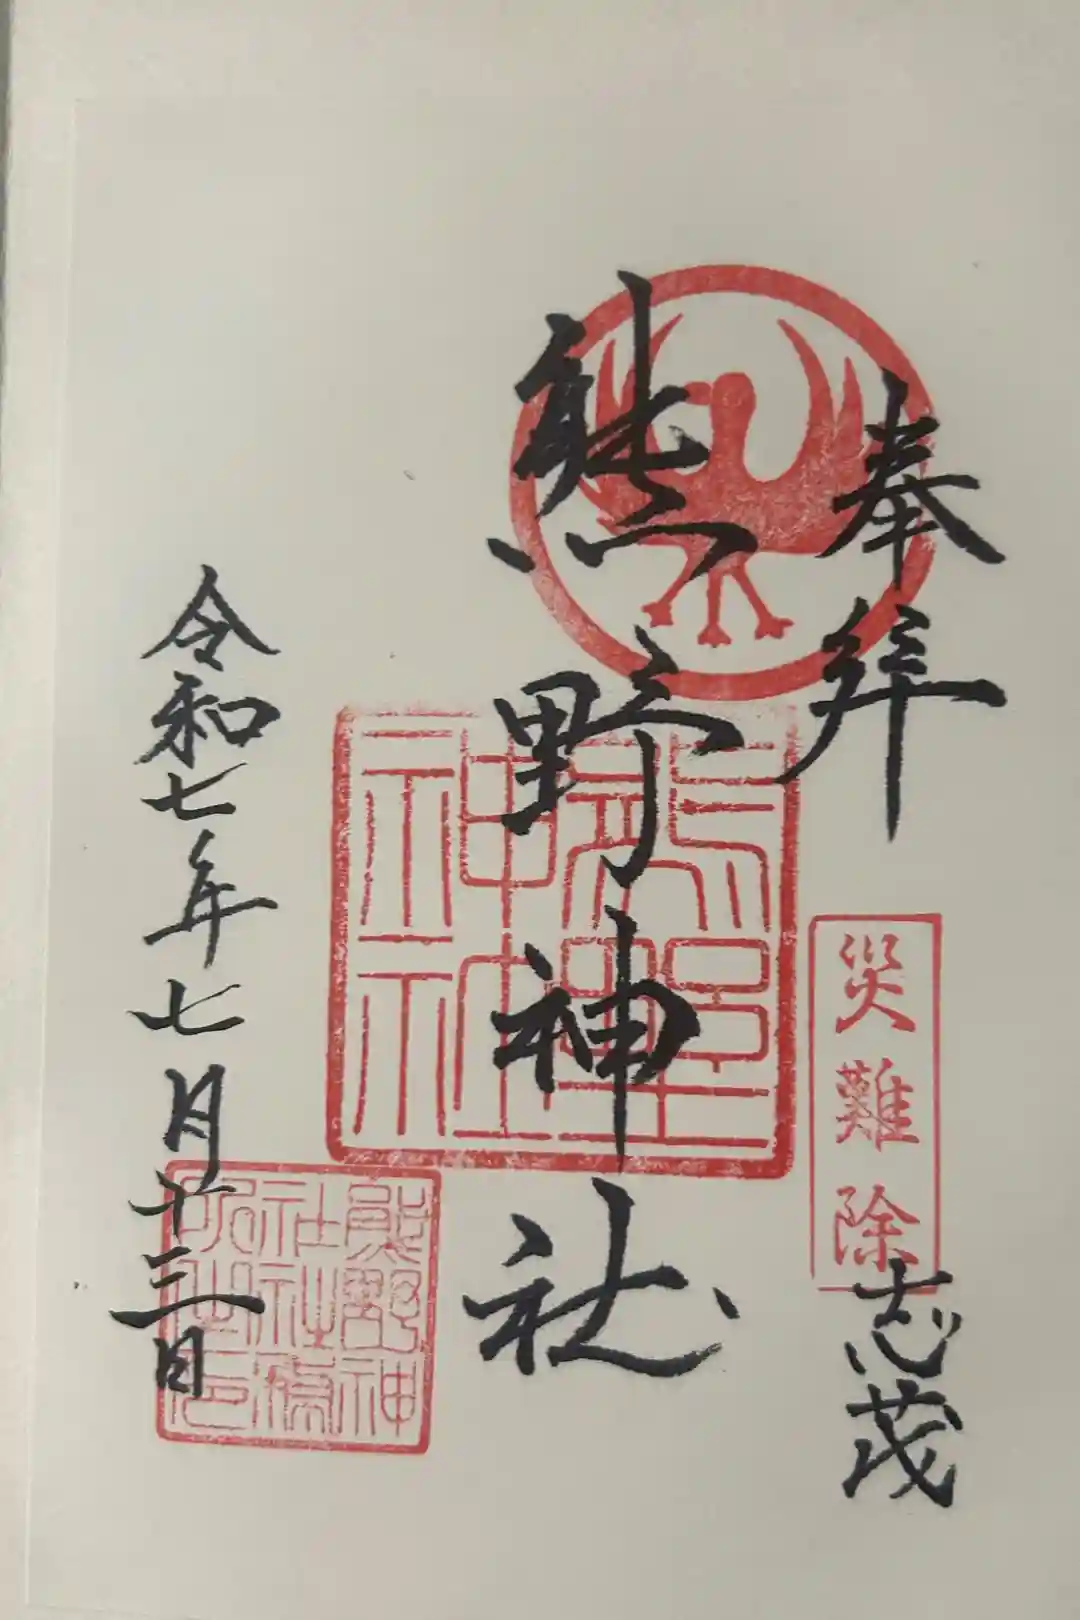 奉拝
災難除
志茂
熊野神社
熊野神社
令和七年七月十三日
熊野神社社務所之印